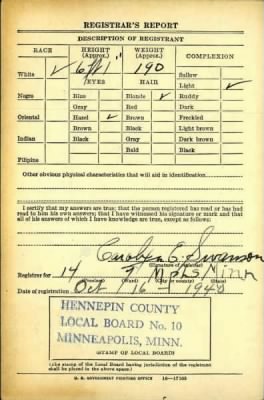 REGISTRAR'S REPORT
DESCRIPTION OF REGISTRANT
RACE HEIGHT (Approx.) WEIGHT (Approx.) COMPLEXION
White ✓ 6 ft 1" 190 Sallow
EYES HAIR Light ✓
Negro Blue Blonde ✓ Ruddy
Gray Red Dark
Oriental Hazel ✓ Brown Freckled
Brown Black Light brown
Indian Black Gray Dark brown
Bald Black
Filipino
Other obvious physical characteristics that will aid in identification
I certify that my answers are true; that the person registered has read or has had
read to him his own answers; that I have witnessed his signature or mark and that
all of his answers of which I have knowledge are true, except as follows:
Carolyn E. Swanson
(Signature of registrar)
Registrar for 14 7 Mpls Minn
(Precinct) (Ward) (City or county) (State)
Date of registration Oct 16 1940
HENNEPIN COUNTY
LOCAL BOARD No. 10
MINNEAPOLIS, MINN.
(STAMP OF LOCAL BOARD)
(The stamp of the Local Board having jurisdiction of the registrant
shall be placed in the above space.)
U. S. GOVERNMENT PRINTING OFFICE 16—17105